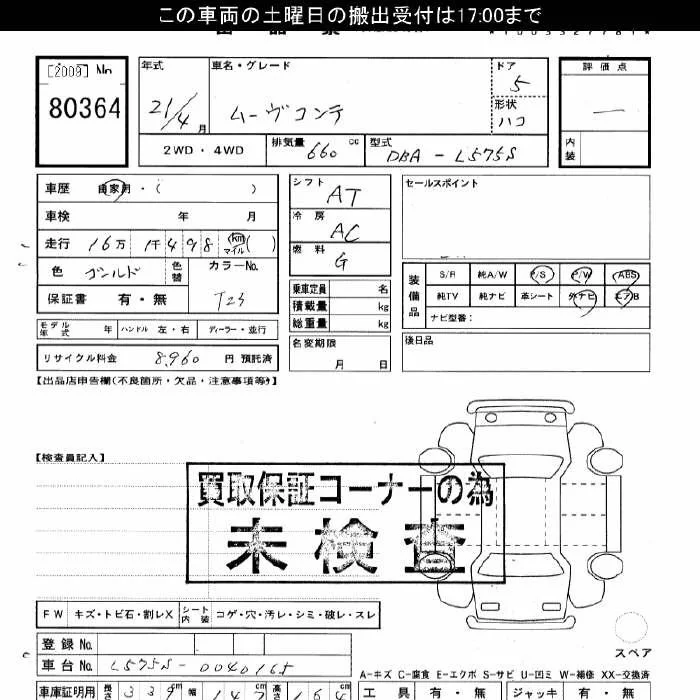 この車両の土曜日の搬出受付は17:00まで
[2009] No
80364
年式
21/4月
車名・グレード
ムーヴコンテ
ドア
5
形状
ハコ
評価点
―
内装
2WD・4WD
排気量 660 cc
型式 DBA-L575S
車歴 自家用・( )
車検 年 月
走行 16万 1千498 km マイル( )
色 ゴールド 色替 カラーNo. T23
保証書 有・無
モデル年式 年 ハンドル 左・右 ディーラー・並行
リサイクル料金 8,960 円 預託済
シフト AT
冷房 AC
燃料 G
乗車定員 名
積載量 kg
総重量 kg
名変期限
月 日
セールスポイント
装備品
S/R 純A/W P/S P/W ABS
純TV 純ナビ 革シート 外ナビ エアB
ナビ型番:
後日品
【出品店申告欄(不良箇所・欠品・注意事項等)】
【検査員記入】
買取保証コーナーの為
未検査
FW キズ・トビ石・割レX シート内装 コゲ・穴・汚レ・シミ・破レ・スレ
スペア
登録No.
車台No. L575S-0040165
A-キズ C-腐食 E-エクボ S-サビ U-凹ミ W-補修 XX-交換済
車庫証明用 長さ 339 cm 幅 147 高さ 164 cm
工具 有・無 ジャッキ 有・無